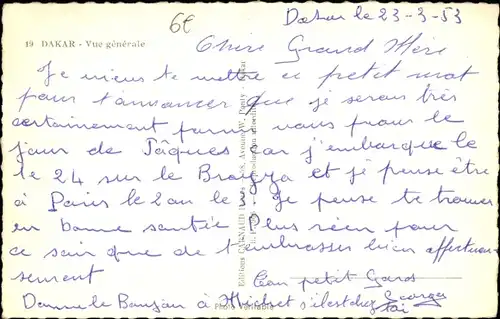 6€
Dakar le 23-3-53
19 DAKAR - Vue générale
Chère Grand Mère
Je viens te mettre ce petit mot
pour t'annoncer que je serais très
certainement parmi vous pour le
jour de Pâques car j'embarque le
le 24 sur le Brazza et je pense être
à Paris le 2 ou le 3. Je pense te trouver
en bonne santée Plus rien pour
ce soir que de t'embrasser bien affectueu
sement
Ton petit Garos
Donne le Bonjour à Michel s'il est chez Georges
toi
Photo Véritable
Editions